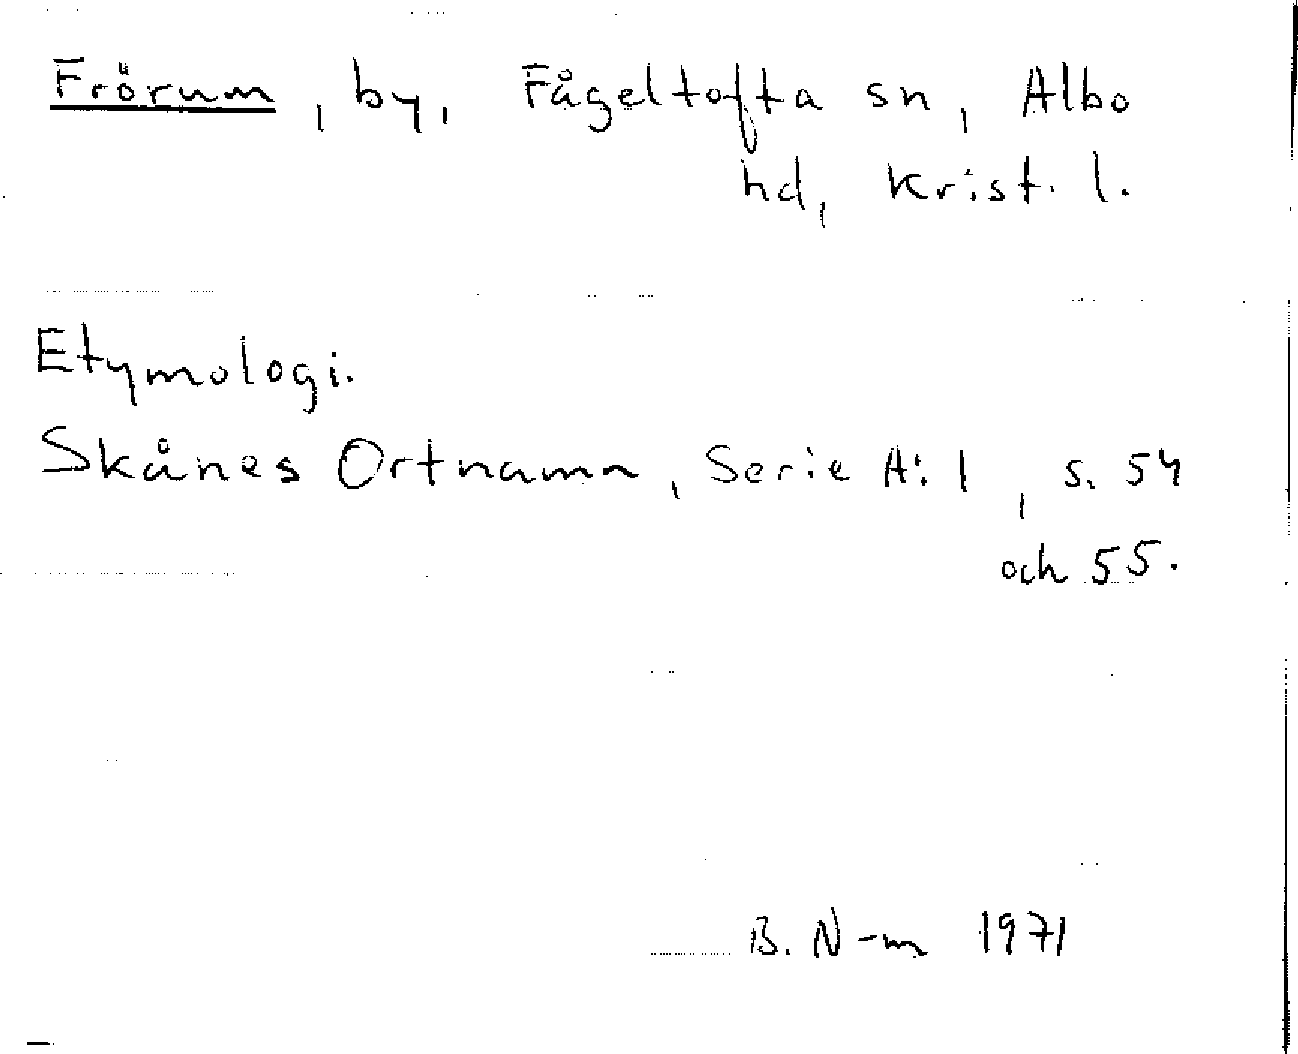 Frörum, by, Fågeltofta sn, Albo
hd, Krist. l.
Etymologi.
Skånes Ortnamn, Serie A: 1, s. 54
och 55.
B. N-m 1971